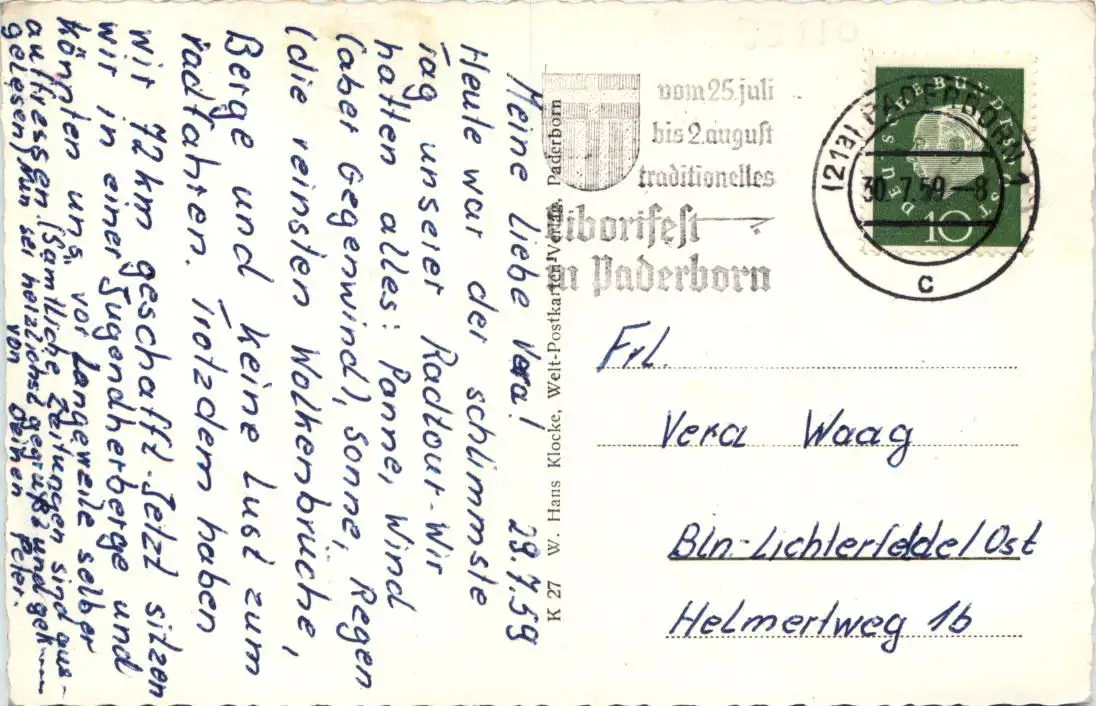 Meine liebe Vera! 29.7.59
Heute war der schlimmste
Tag unserer Radtour-Wir
hatten alles: Panne, Wind
(aber Gegenwind), Sonne, Regen
(die reinsten Wolkenbrüche,
Berge und keine Lust zum
radfahren. Trotzdem haben
wir 72 km geschafft. Jetzt sitzen
wir in einer Jugendherberge und
könnten uns vor Langeweile selber
auffressen. (Sämtliche Zeitungen sind aus-
gelesen) Nun sei herzlichst gegrüßt und gek
von Deinen Peter.
K 27 W. Hans Klocke, Welt-Postkarten-Verlag, Paderborn
vom 25. juli
bis 2. august
traditionelles
Liborifest
in Paderborn
(21a) PADERBORN 1
30.7.59.-8
c
DEUTSCHE BUNDESPOST
10
Frl.
Vera Waag
Bln.-Lichterfelde/Ost
Helmertweg 1b